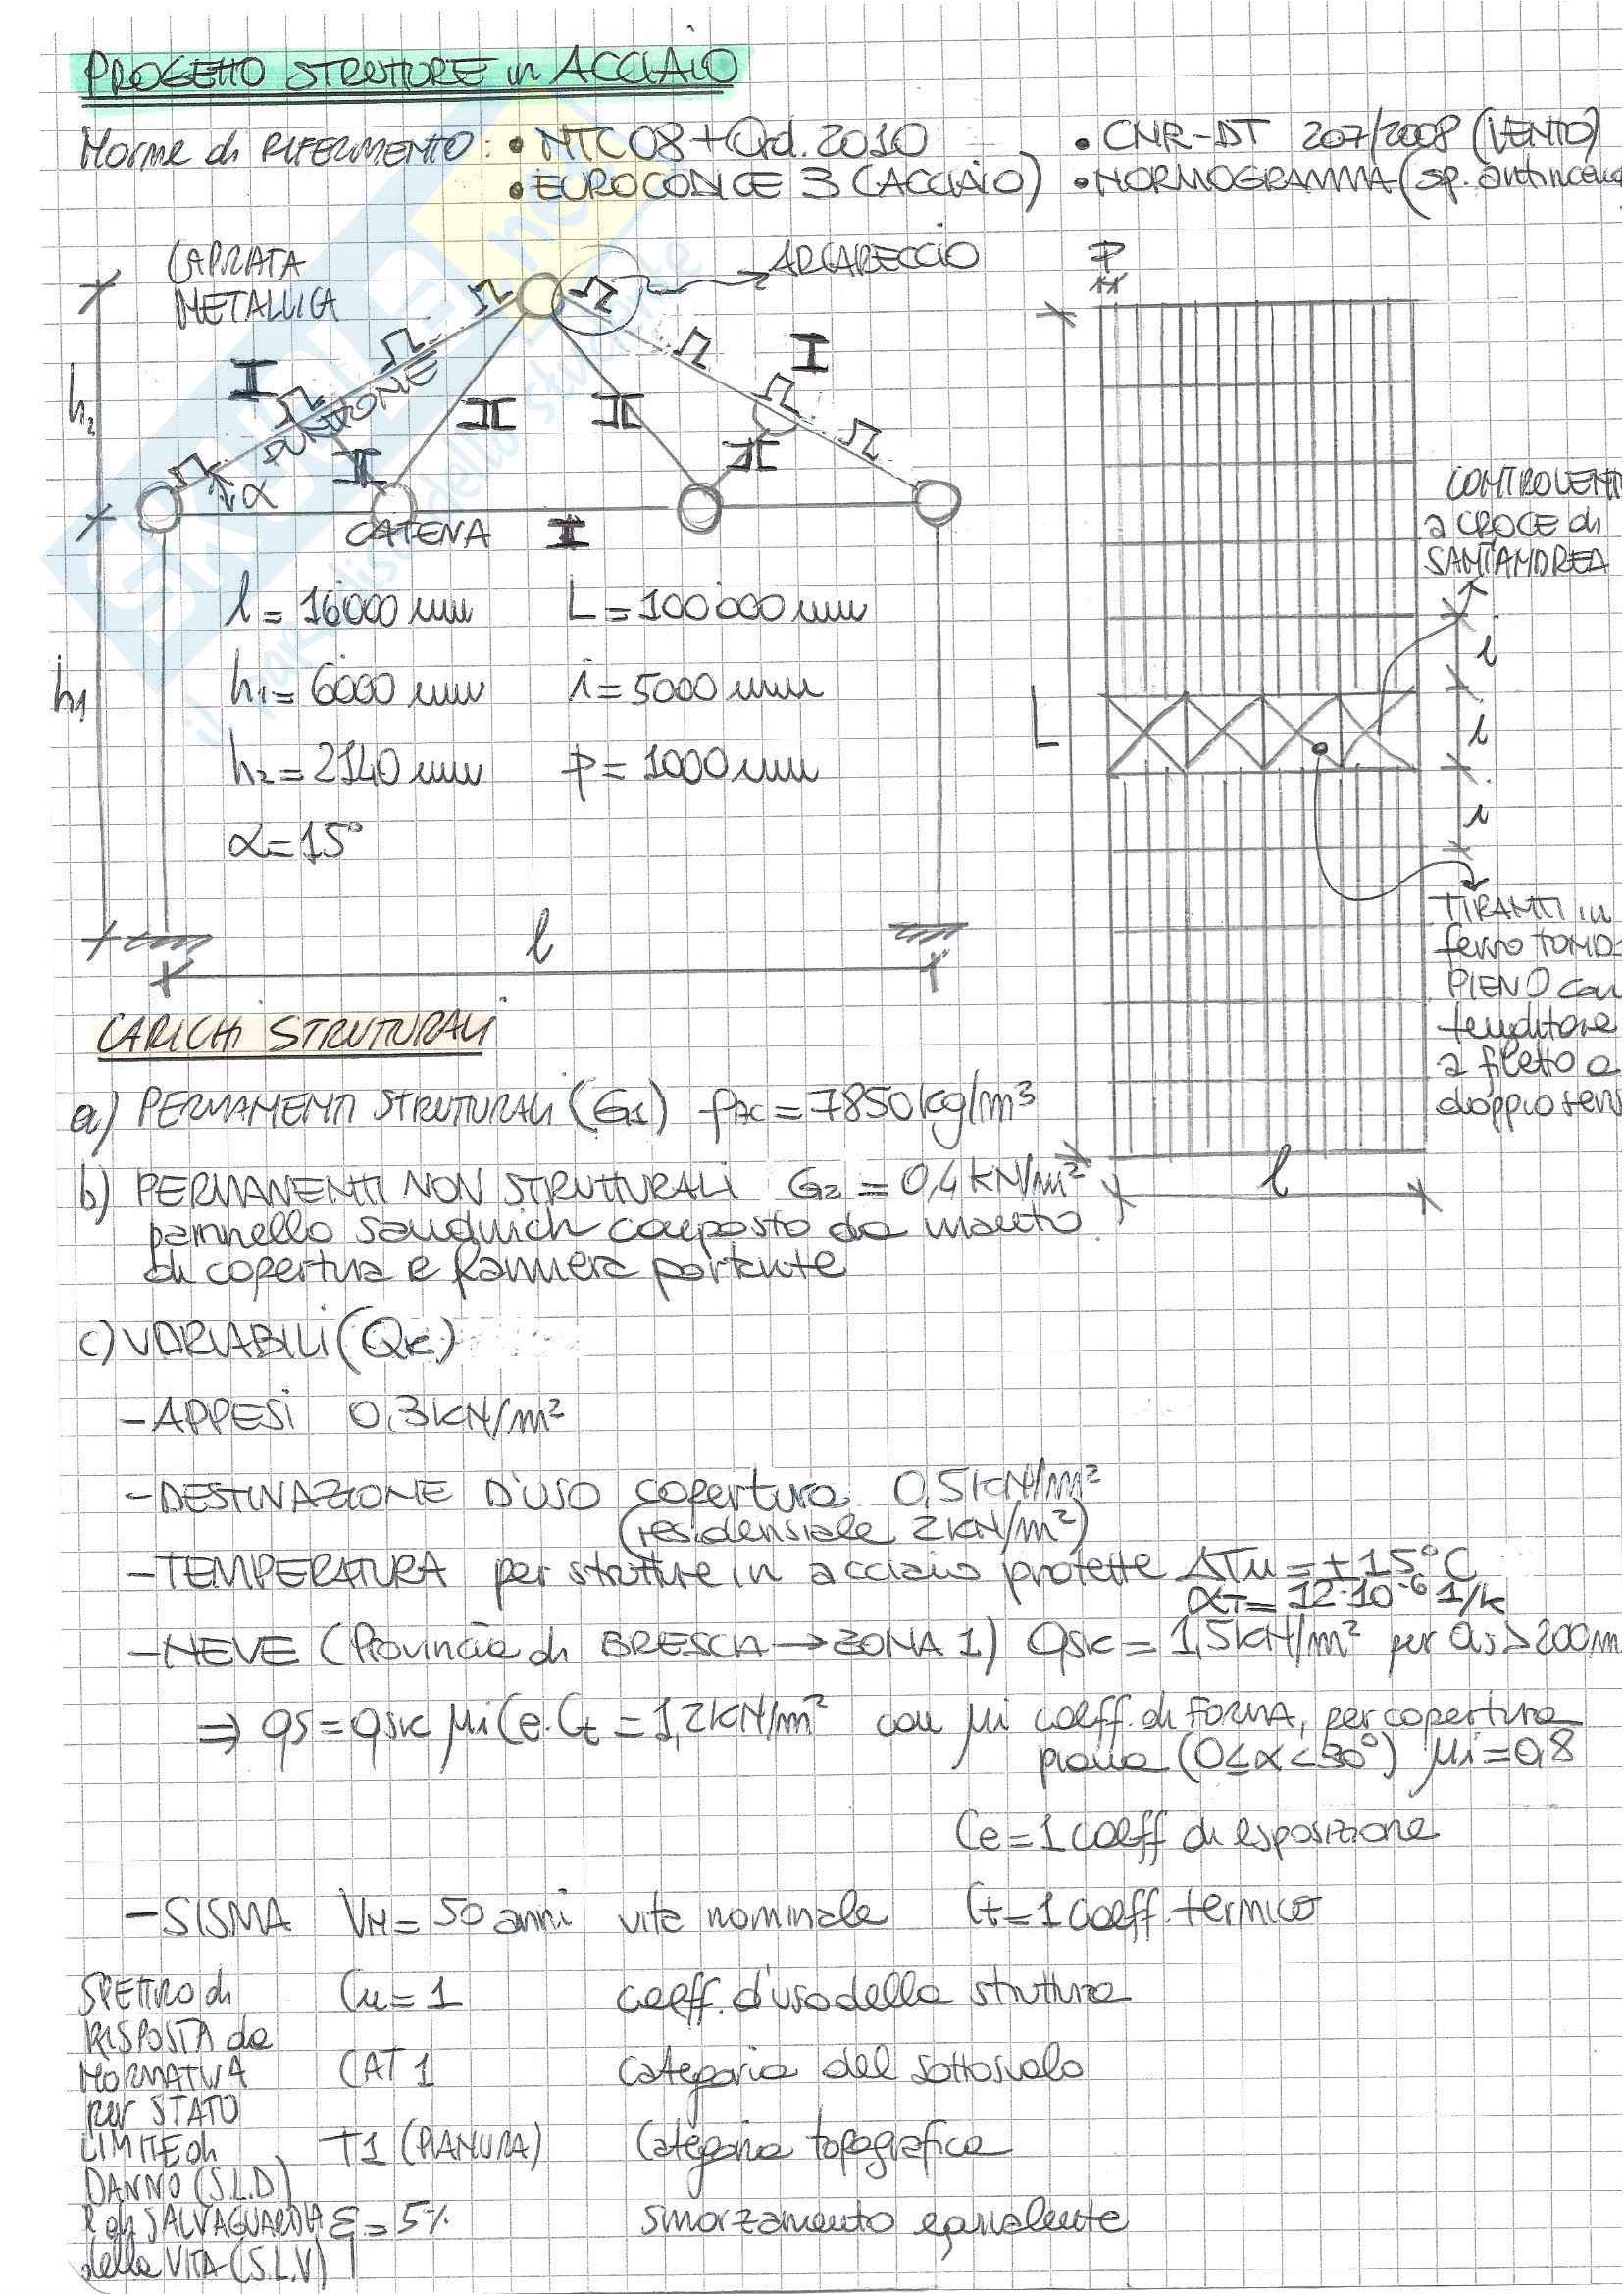 PROGETTO STRUTTURE in ACCIAIO
Norme di RIFERIMENTO: • NTC08+Ord. 2010
• CNR-DT 207/2008 (VENTO)
• EUROCODICE 3 (ACCIAIO)
• NORMOGRAMMA (sp. antincend
CAPRIATA
METALLICA
ARCARECCIO
P
h2
PUNTONE
α
CATENA
CONTROVENTI
a CROCE di
SANT'ANDREA
l = 16000 mm L = 100000 mm
h1 = 6000 mm i = 5000 mm
h2 = 2140 mm p = 1000 mm
α = 15°
h1
L
i
i
i
l
TIRANTI in
ferro TONDO
PIENO con
tenditore
a filetto a
doppio sens
l
CARICHI STRUTTURALI
a) PERMANENTI STRUTTURALI (G1) ρAC = 7850 kg/m³
b) PERMANENTI NON STRUTTURALI G2 = 0,4 KN/m²
pannello sandwich composto da manto
di copertura e lamiera portante
c) VARIABILI (QK)
- APPESI 0,3 KN/m²
- DESTINAZIONE D'USO copertura 0,5 KN/m²
(residenziale 2 KN/m²)
- TEMPERATURA per strutture in acciaio protette ΔTu = ± 15°C
αT = 12·10⁻⁶ 1/K
- NEVE (Provincia di BRESCIA → ZONA 1) qsk = 1,5 KN/m² per as > 200m
⇒ qs = qsk μi Ce·Ct = 1,2 KN/m² con μi coeff. di FORMA, per copertura
piana (0 ≤ α < 30°) μi = 0,8
Ce = 1 coeff di esposizione
- SISMA VN = 50 anni vita nominale Ct = 1 coeff. termico
SPETTRO di
RISPOSTA da
NORMATIVA
per STATO
LIMITE di
DANNO (S.L.D)
e di SALVAGUARDIA
della VITA (S.L.V)
Cu = 1 coeff. d'uso della struttura
CAT 1 categoria del sottosuolo
T1 (PIANURA) Categoria topografica
ξ = 5% smorzamento equivalente